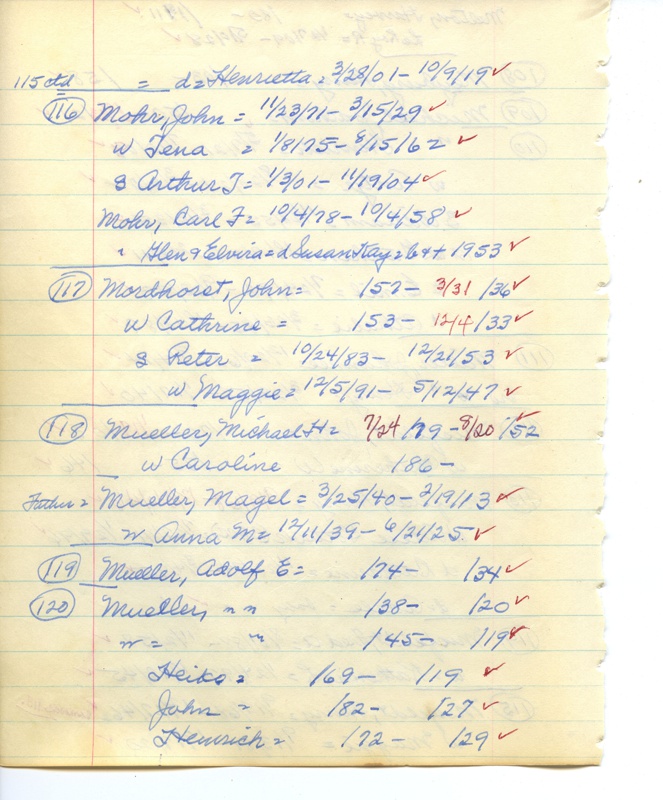 115 ctd = d = Henrietta = 3/28/01 - 10/9/19 ✓
116 Mohr, John = 11/23/71 - 3/15/29 ✓
w Tena = 1/8/75 - 8/15/62 ✓
s Arthur J = 1/3/01 - 11/19/04 ✓
Mohr, Carl F = 10/4/78 - 10/4/58 ✓
" Glen & Elvira = d Susan Kay = b & + 1953 ✓
117 Mordhorst, John = /57 - 3/31 /36 ✓
w Cathrine = /53 - 12/4 /33 ✓
s Peter = 10/24/83 - 12/21/53 ✓
w Maggie = 12/5/91 - 5/12/47 ✓
118 Mueller, Michael H = 7/24 /79 - 8/20 /52 ✓
w Caroline 186 -
Father = Mueller, Magel = 3/25/40 - 2/19/13 ✓
w Anna M = 12/11/39 - 6/21/25 ✓
119 Mueller, Adolf E = /74 - /34 ✓
120 Mueller, " " /38 - /20 ✓
w = " /45 - /19 ✓
Heiko = /69 - /19 ✓
John = /82 - /27 ✓
Heinrich = /72 - /29 ✓